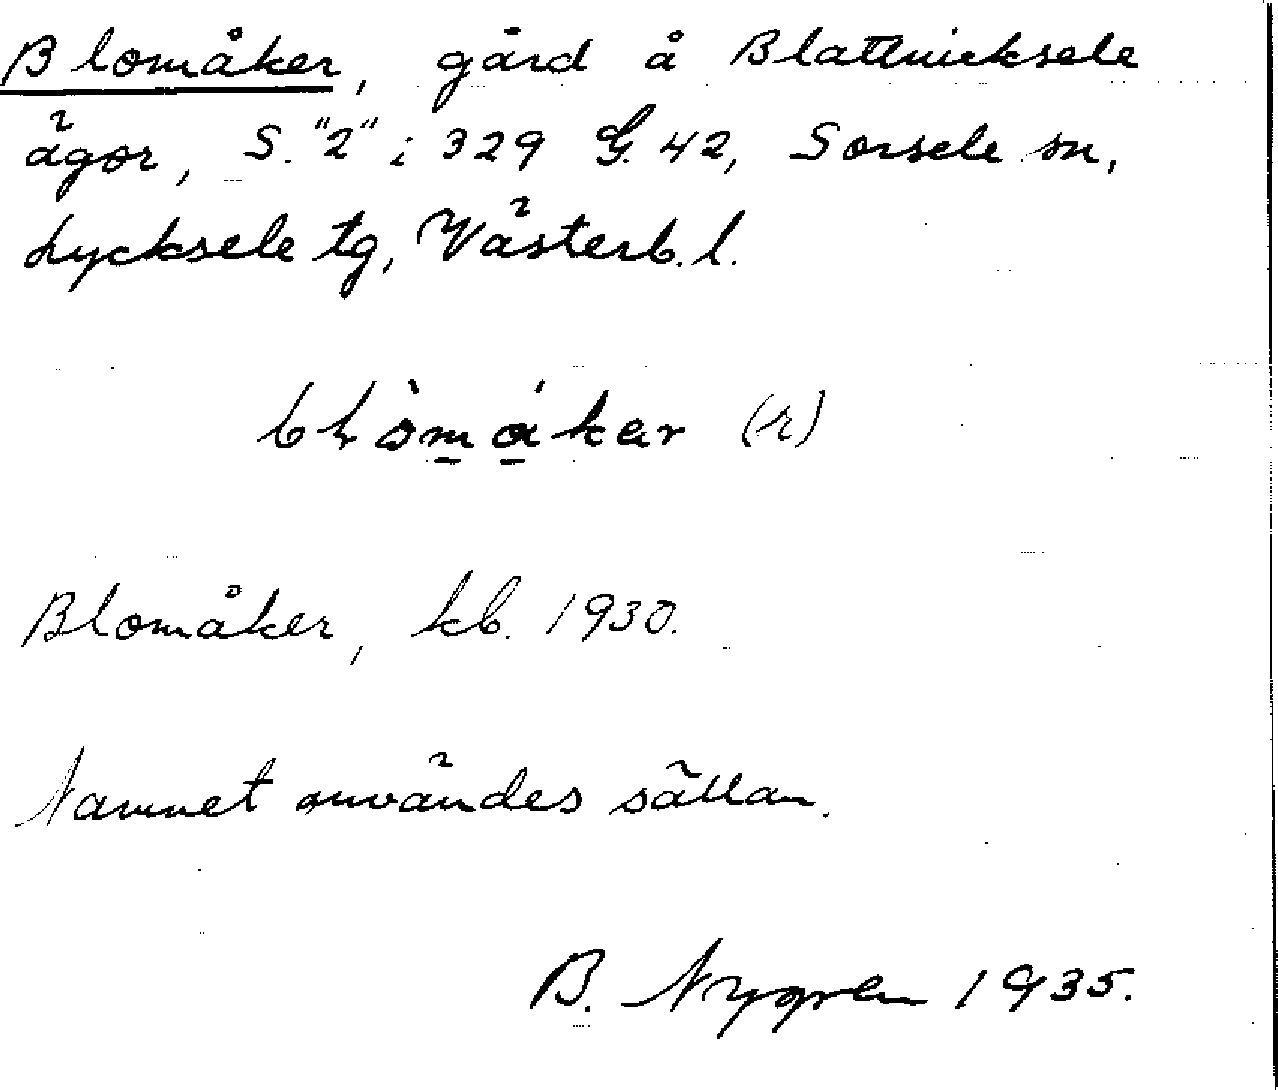 Blomåker, gård å Blattnicksele
ägor, S. "2" i 329 G. 42, Sorsele sn,
Lycksele tg, Västerb. l.
Blomåker, kb. 1930.
Namnet användes sällan.
B. Nygren 1935.